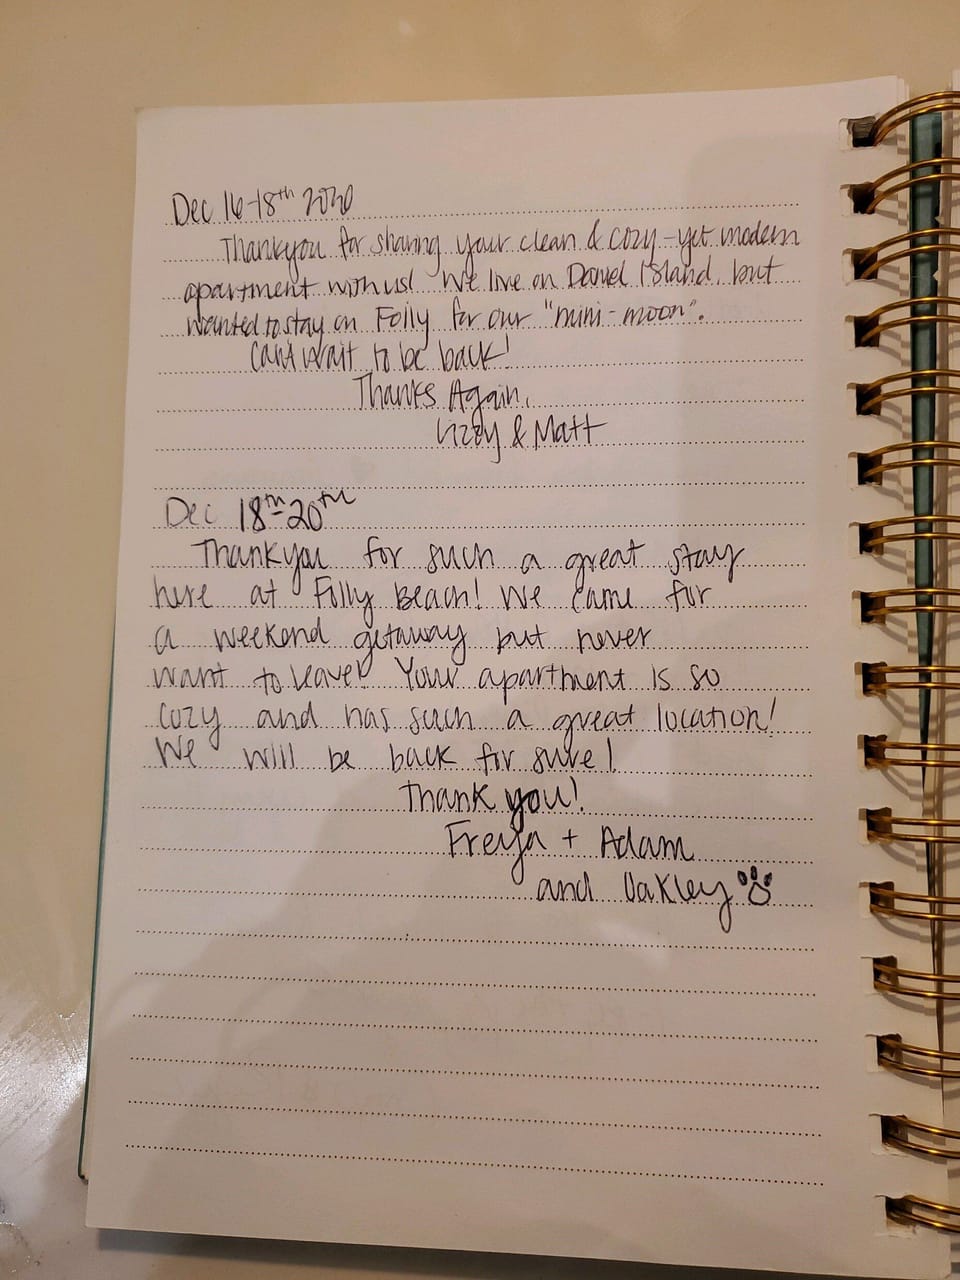 Dec 16-18th 2020
Thankyou for sharing your clean & cozy-yet modern
apartment with us! We live on Daniel Island, but
wanted to stay on Folly for our "mini-moon".
Can't wait to be back!
Thanks Again,
Lizzy & Matt
Dec 18th-20th
Thankyou for such a great stay
here at Folly Beach! We came for
a weekend getaway but never
want to leave! Your apartment is so
cozy and has such a great location!
We will be back for sure!
Thank you!
Freya + Adam
and Oakley